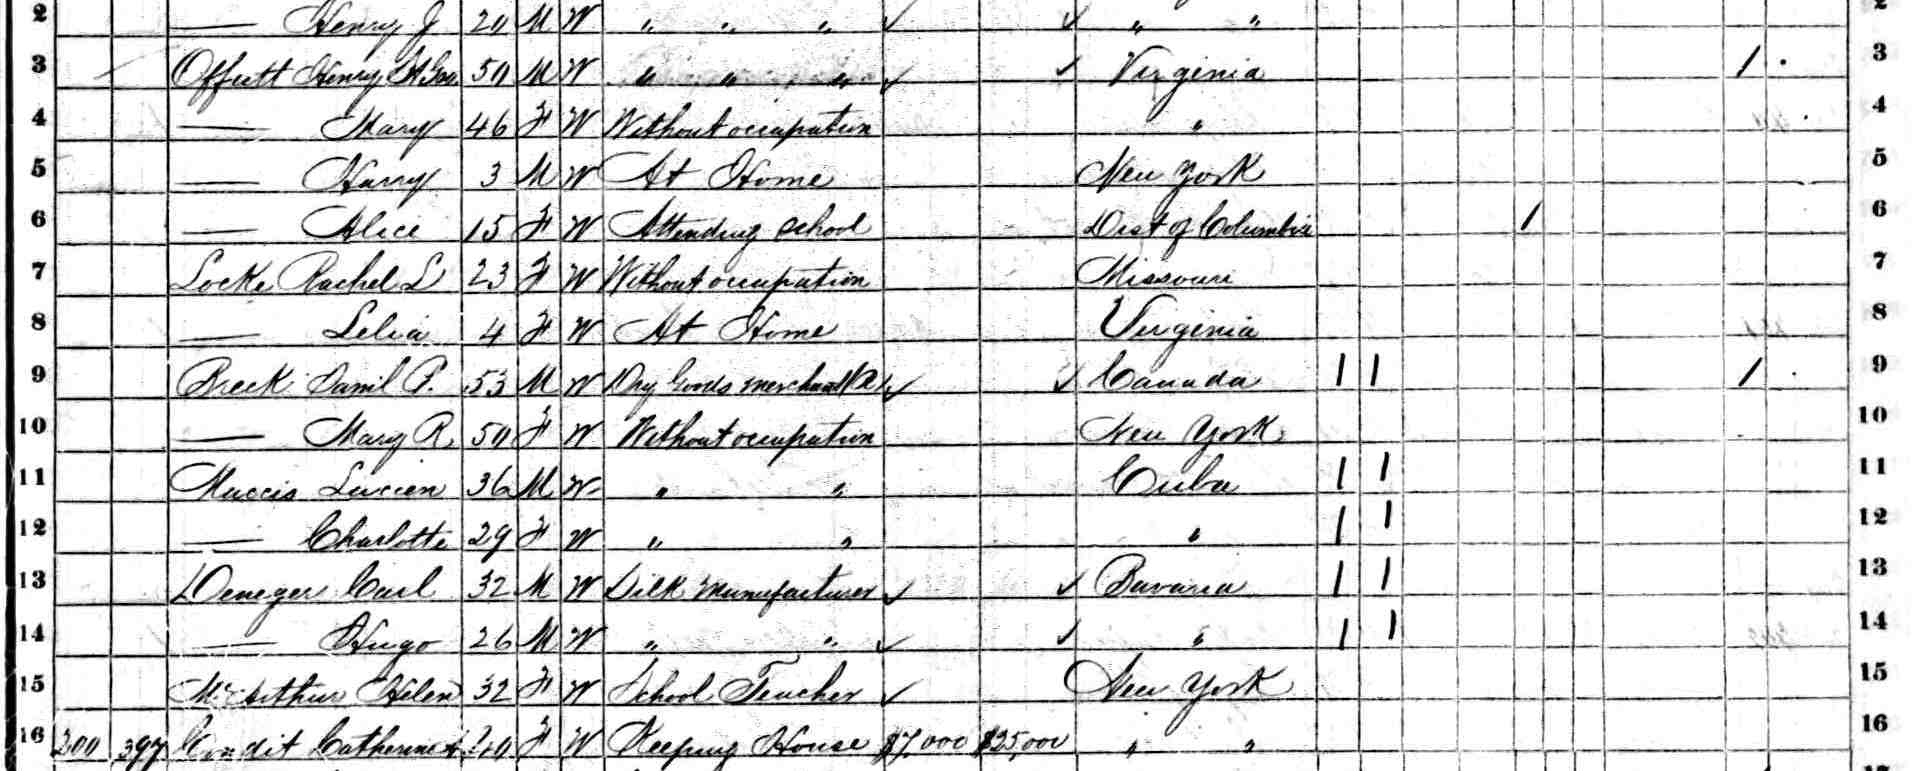 2 —— Henry J 20 M W " " " ✓ ✓ " " 2
3 Offutt Henry 50 M W " " " ✓ ✓ Virginia 1 . 3
4 —— Mary 46 F W Without occupation " 4
5 —— Harry 3 M W At Home New York 5
6 —— Alice 15 F W Attending School Dist of Columbia 1 6
7 Locke Rachel L 23 F W Without occupation Missouri 7
8 —— Lelia 4 F W At Home Virginia 8
9 Breck Danil P. 53 M W Dry Goods merchant ✓ ✓ Canada 1 1 1 9
10 —— Mary R 50 F W Without occupation New York 10
11 Lucien 36 M W " " Cuba 1 1 11
12 —— Charlotte 29 F W " " " 1 1 12
13 Deneger Carl 32 M W Silk manufacturer ✓ ✓ Bavaria 1 1 13
14 —— Hugo 26 M W " " ✓ ✓ " 1 1 14
15 McArthur Helen 32 F W School Teacher ✓ New York 15
16 200 397 Condit Catherine F W Keeping House $7,000 $25,000 " " 16